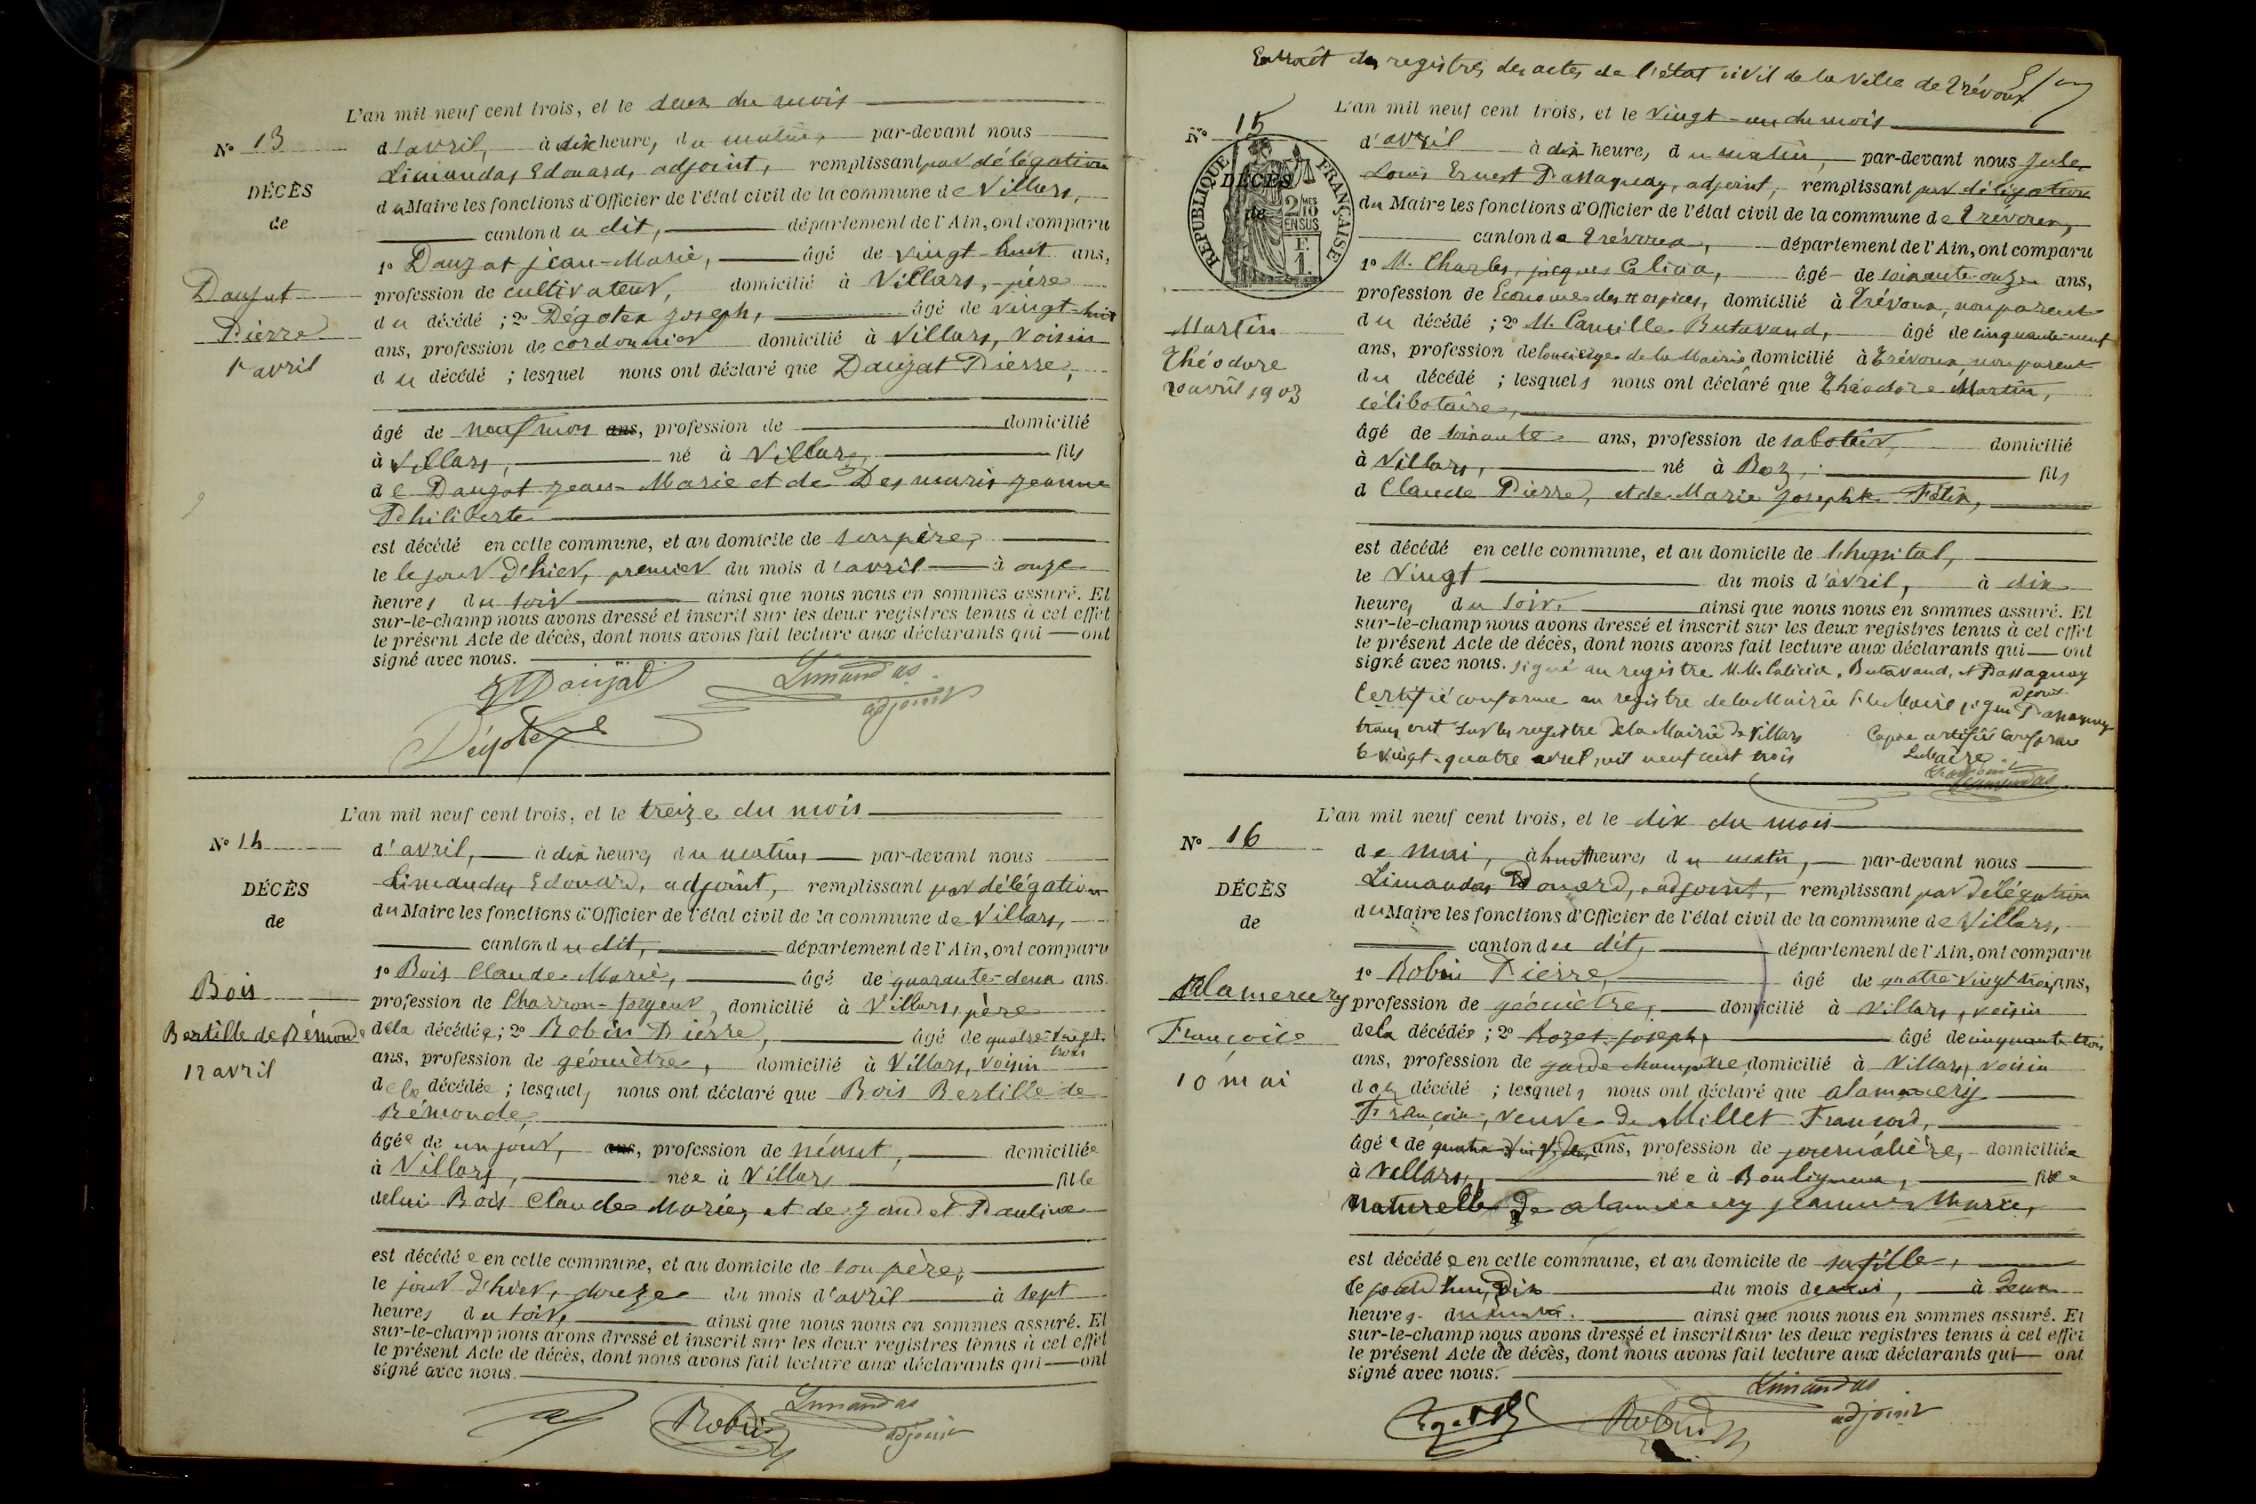 L'an mil neuf cent trois, et le deux du mois
N° 13
d'avril, à dix heures du matin, par-devant nous
Limandas Edouard, adjoint, remplissant par délégation
DÉCÈS
du Maire les fonctions d'Officier de l'état civil de la commune de Villars,
de
canton du dit, département de l'Ain, ont comparu
1° Daujat Jean-Marie, âgé de vingt-huit ans,
Daujat
profession de cultivateur, domicilié à Villars, père
du décédé ; 2° Joseph, âgé de vingt-huit
Pierre
ans, profession de cordonnier domicilié à Villars, voisin
1r avril
du décédé ; lesquel nous ont déclaré que Daujat Pierre,
âgé de neuf mois ans, profession de domicilié
à Villars, né à Villars, fils
de Daujat Jean-Marie et de Desmaris Jeanne
Philiberte
est décédé en cette commune, et au domicile de son père,
le le jour d'hier, premier du mois d'avril à onze
heures du soir ainsi que nous nous en sommes assuré. Et
sur-le-champ nous avons dressé et inscrit sur les deux registres tenus à cet effet
le présent Acte de décès, dont nous avons fait lecture aux déclarants qui ont
signé avec nous.
Daujat Limandas
adjoint
L'an mil neuf cent trois, et le treize du mois
N° 14
d'avril, à dix heures du matin, par-devant nous
Limandas Edouard, adjoint, remplissant par délégation
DÉCÈS
du Maire les fonctions d'Officier de l'état civil de la commune de Villars,
de
canton du dit, département de l'Ain, ont comparu
1° Bois Claude-Marie, âgé de quarante-deux ans.
Bois
profession de Charron-forgeur, domicilié à Villars, père
Bertille de Rémonde
dela décédée ; 2° Robin Pierre, âgé de quatre-vingt-
trois
ans, profession de géomètre, domicilié à Villars, voisin
12 avril
de la décédée ; lesquels nous ont déclaré que Bois Bertille de
Rémonde,
âgée de un jour, ans, profession de néant, domiciliée
à Villars, née à Villars fille
delui Bois Claude Marie, et de Jandet Pauline
est décédée en cette commune, et au domicile de son père,
le jour d'hier, douze du mois d'avril à sept
heures du soir, ainsi que nous nous en sommes assuré. Et
sur-le-champ nous avons dressé et inscrit sur les deux registres tenus à cet effet
le présent Acte de décès, dont nous avons fait lecture aux déclarants qui ont
signé avec nous.
Robin Limandas
adjoint
Extrait des registres des actes de l'état civil de la ville de Trévoux
L'an mil neuf cent trois, et le vingt-un du mois
N° 15
d'avril à dix heures du matin, par-devant nous Jules
RÉPUBLIQUE FRANÇAISE
2/10 MES EN SUS
F. 1.
Louis Ernest Passaquay, adjoint, remplissant par délégation
DÉCÈS
du Maire les fonctions d'Officier de l'état civil de la commune de Trévoux,
de
canton de Trévoux, département de l'Ain, ont comparu
1° M. Charles, jacques Calicia, âgé de soixante-onze ans,
profession de Econome des Hospices, domicilié à Trévoux, non parent
Martin
du décédé ; 2° M. Camille Butavand, âgé de cinquante-neuf
Théodore
ans, profession de Concierge de la Mairie domicilié à Trévoux, non parent
20 avril 1903
du décédé ; lesquels nous ont déclaré que Théodore Martin,
célibataire,
âgé de soixante ans, profession de sabotier, domicilié
à Villars, né à Boz, fils
d Claude Pierre, et de Marie Josephte Félix,
est décédé en cette commune, et au domicile de l'hopital,
le vingt du mois d'avril, à dix
heures du soir. ainsi que nous nous en sommes assuré. Et
sur-le-champ nous avons dressé et inscrit sur les deux registres tenus à cet effet
le présent Acte de décès, dont nous avons fait lecture aux déclarants qui ont
signé avec nous. signé au registre M.M. Calicia, Butavand, et Passaquay
adjoint
Certifié conforme au registre de la Mairie P. le Maire signé Passaquay
sur les registre de la Mairie de Villars
Copie certifiée conforme
le vingt-quatre avril mil neuf cent trois
Le Maire
Limandas
L'an mil neuf cent trois, et le dix du mois
N° 16
de mai, à huit heures du matin, par-devant nous
Limandas Edouard, adjoint, remplissant par délégation
DÉCÈS
du Maire les fonctions d'Officier de l'état civil de la commune de Villars,
de
canton du dit, département de l'Ain, ont comparu
1° Robin Pierre, âgé de quatre-vingt-trois ans,
Alamercery
profession de géomètre, domicilié à Villars, voisin
Françoise
dela décédée ; 2° Rozet Joseph, âgé de cinquante trois
ans, profession de garde champêtre, domicilié à Villars, voisin
10 mai
de la décédé ; lesquels nous ont déclaré que alamercery
Françoise, veuve de Millet François,
âgée de ans, profession de journalière, domiciliée
à Villars, née à Bouligneux, fille
naturelle de alamercery jeanne Marie,
est décédée en cette commune, et au domicile de sa fille,
le dix du mois de mai, à deux
heures du matin. ainsi que nous nous en sommes assuré. Et
sur-le-champ nous avons dressé et inscrit sur les deux registres tenus à cet effet
le présent Acte de décès, dont nous avons fait lecture aux déclarants qui ont
signé avec nous.
Robin Limandas
adjoint